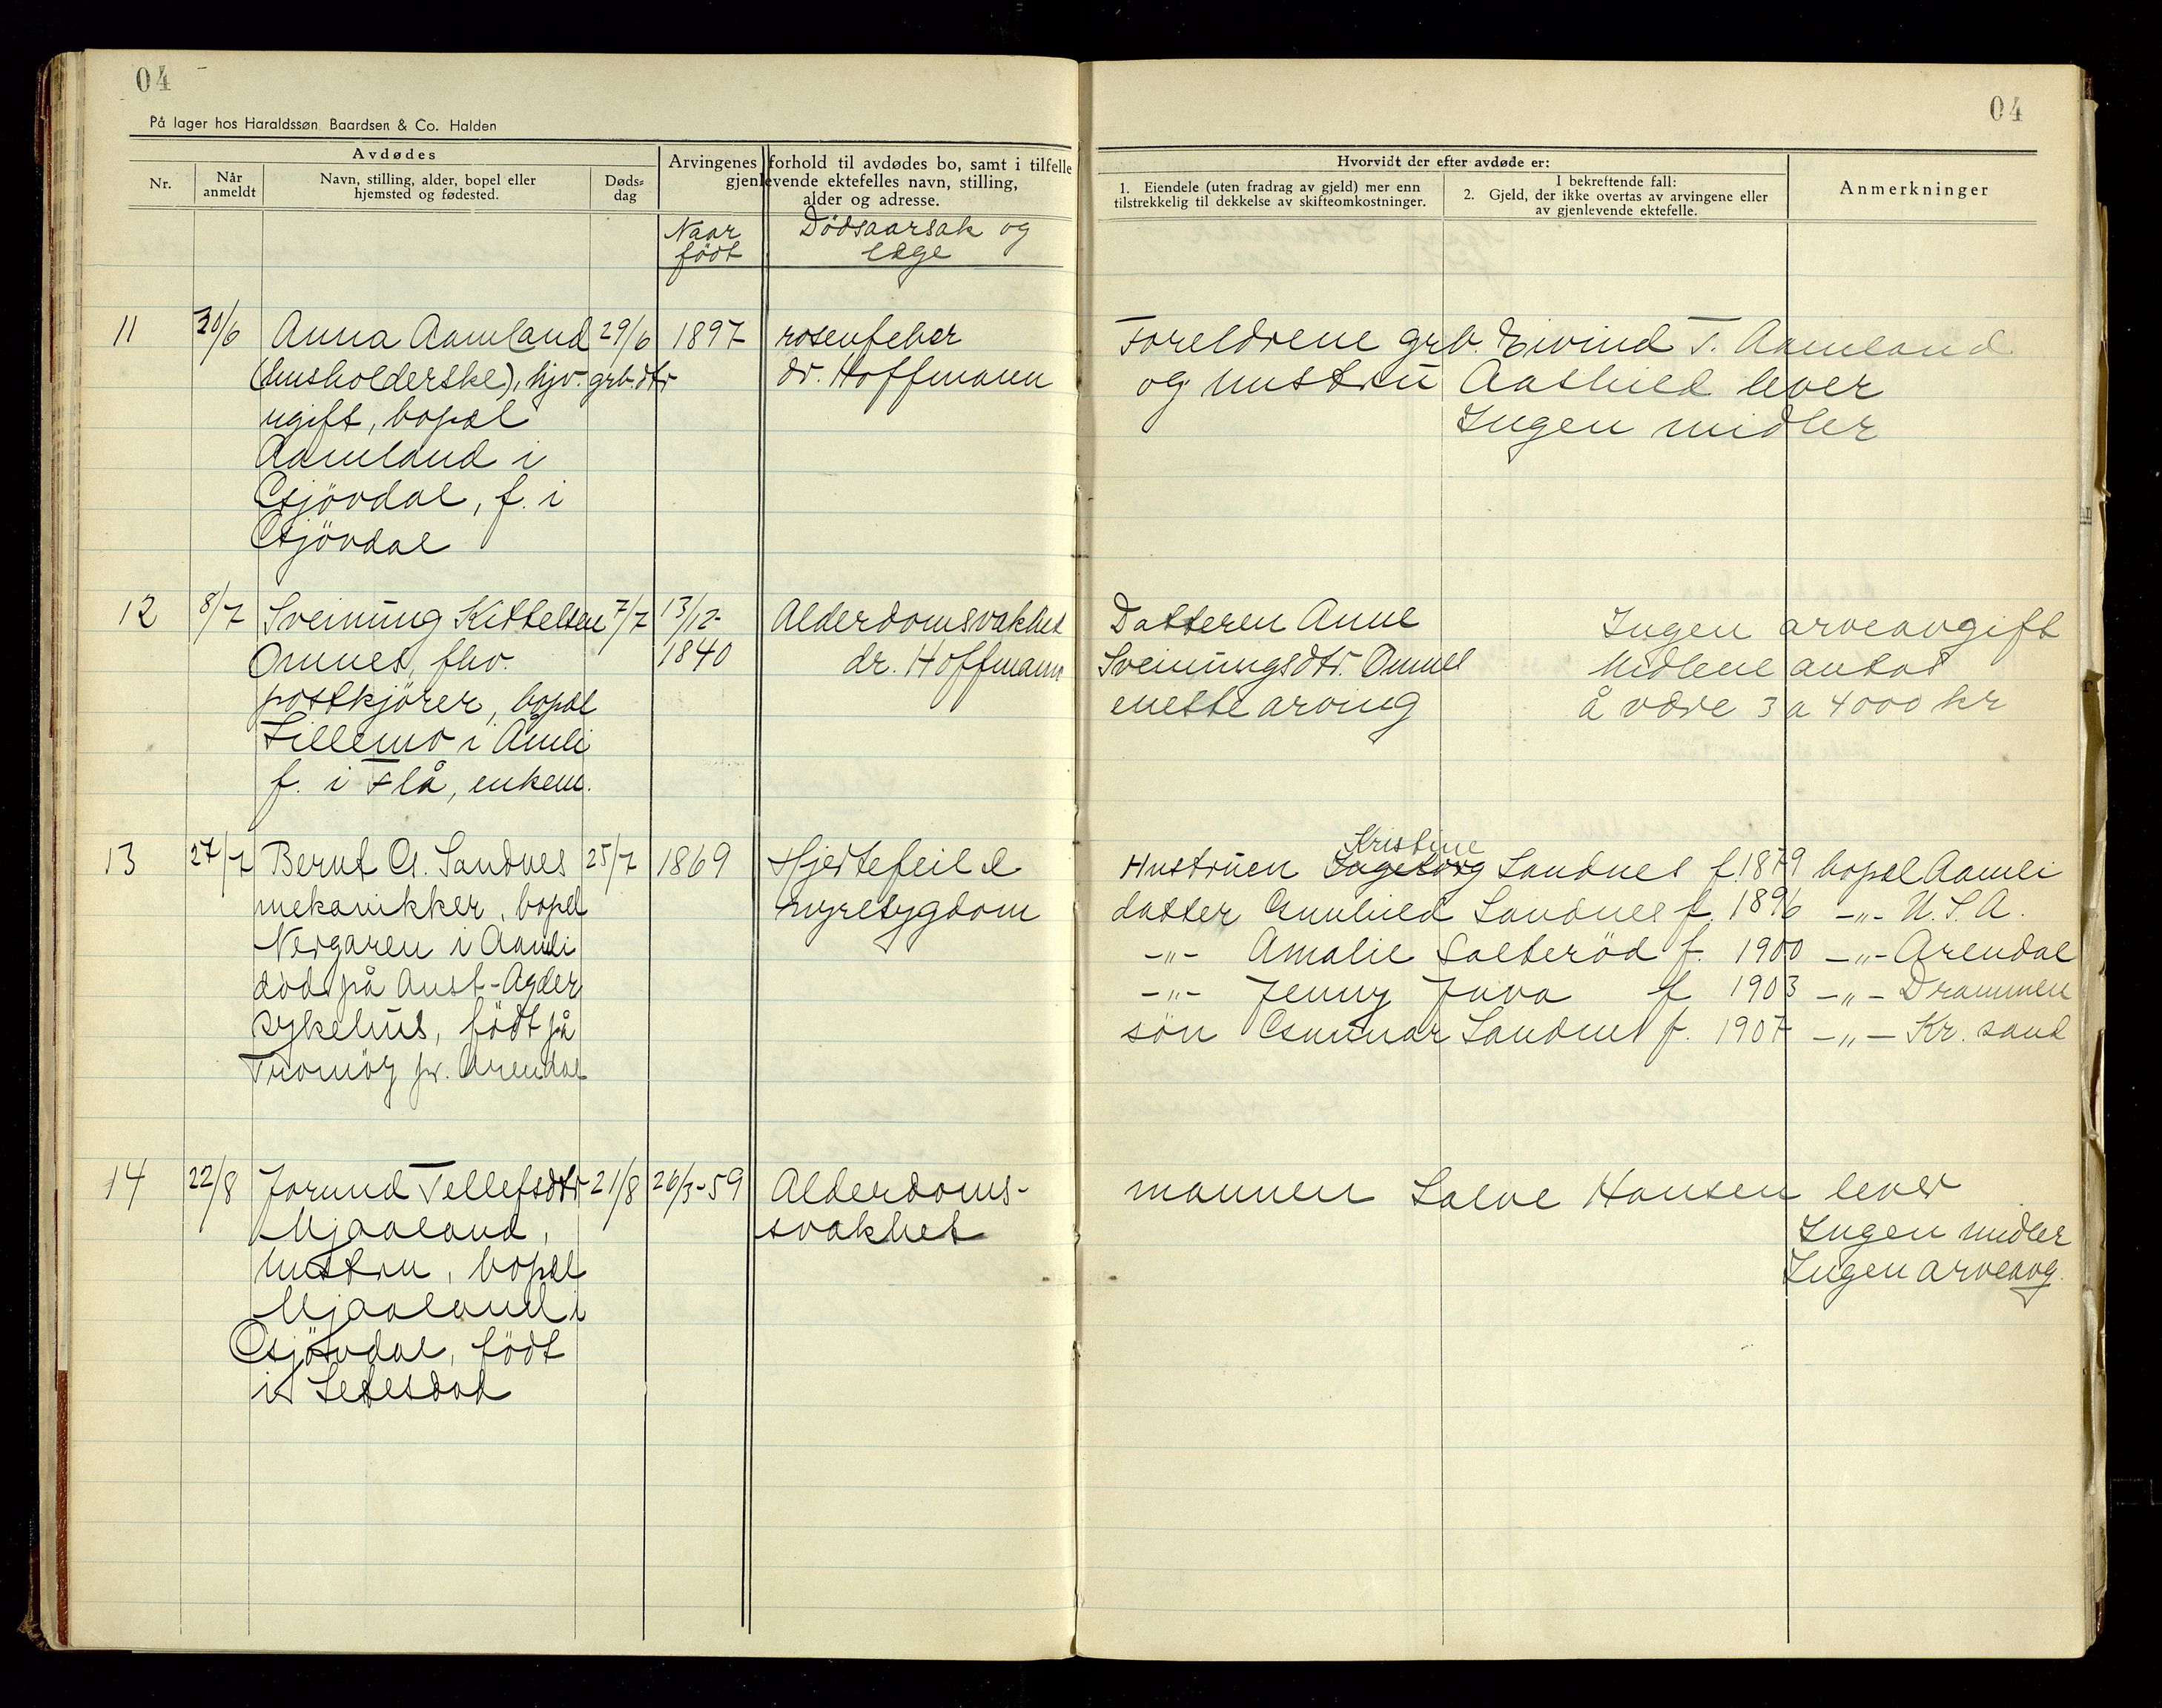 04
04
På lager hos Haraldssøn Baardsen & Co. Halden
Avdødes
Nr.
Når anmeldt
Navn, stilling, alder, bopel eller hjemsted og fødested.
Døds-dag
Arvingenes forhold til avdødes bo, samt i tilfelle gjenlevende ektefelles navn, stilling, alder og adresse.
Naar födt
Dödsaarsak og læge
Hvorvidt der efter avdøde er:
1. Eiendele (uten fradrag av gjeld) mer enn tilstrekkelig til dekkelse av skifteomkostninger.
I bekreftende fall:
2. Gjeld, der ikke overtas av arvingene eller av gjenlevende ektefelle.
Anmerkninger
11 30/6 Anna Aamland 29/6 1897 rosenfeber
(husholderske), hjv. grb.dtr dr. Hoffmann
ugift, bopæl
Aamland i
Gjövdal, f. i
Gjövdal
Foreldrene grb. Eivind T. Aamland
og hustru Aashild lever
Ingen midler
12 8/7 Sveinung Kittelsen 7/7 13/12- Alderdomsvakhet
Omnes, fhv. 1840 dr. Hoffmann
postkjörer, bopæl
Lillemo i Åmli
f. i Flå, enkem.
Datteren Anne
Sveinungsdtr. Omnes
eneste arving
Ingen arveavgift
Midlene antas
å være 3 a 4000 kr
13 27/7 Bernt G. Sandnes 25/7 1869 Hjertefeil &
mekanikker, bopæl nyresygdom
Nergaren i Aamli
död på Aust-Agder
sykehus, födt på
Tromöy pr. Arendal
Kristine
Hustruen Ingeborg Sandnes f. 1879 bopæl Aamli
datter Gunhild Sandnes f. 1896 -„- U.S.A.
-„- Amalie Salteröd f. 1900 -„- Arendal
-„- Jenny Juva f. 1903 -„- Drammen
sön Gunnar Sandnes f. 1907 -„- Kr. sand
14 22/8 Jorund Tellefsdtr 21/8 26/3-59 Alderdoms-
Mjaaland, svakhet
hustru, bopæl
Mjaaland i
Gjövdal, födt
i Setesdal
mannen Salve Hansen lever
Ingen midler
Ingen arveavg.